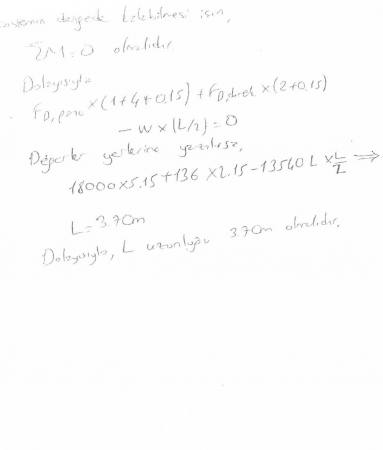 sistemin dengede kalabilmesi için,
ΣM=0 olmalıdır.
Dolayısıyla
F_D,pano x(1+4+0.15)+F_D,direk x(2+0.15)
-W x (L/2)=0
Değerler yerlerine yazılırsa,
18000x5.15+136 x2.15-13540 L x L/2 ⇒
L=3.70m
Dolayısıyla, L uzunluğu 3.70m olmalıdır.